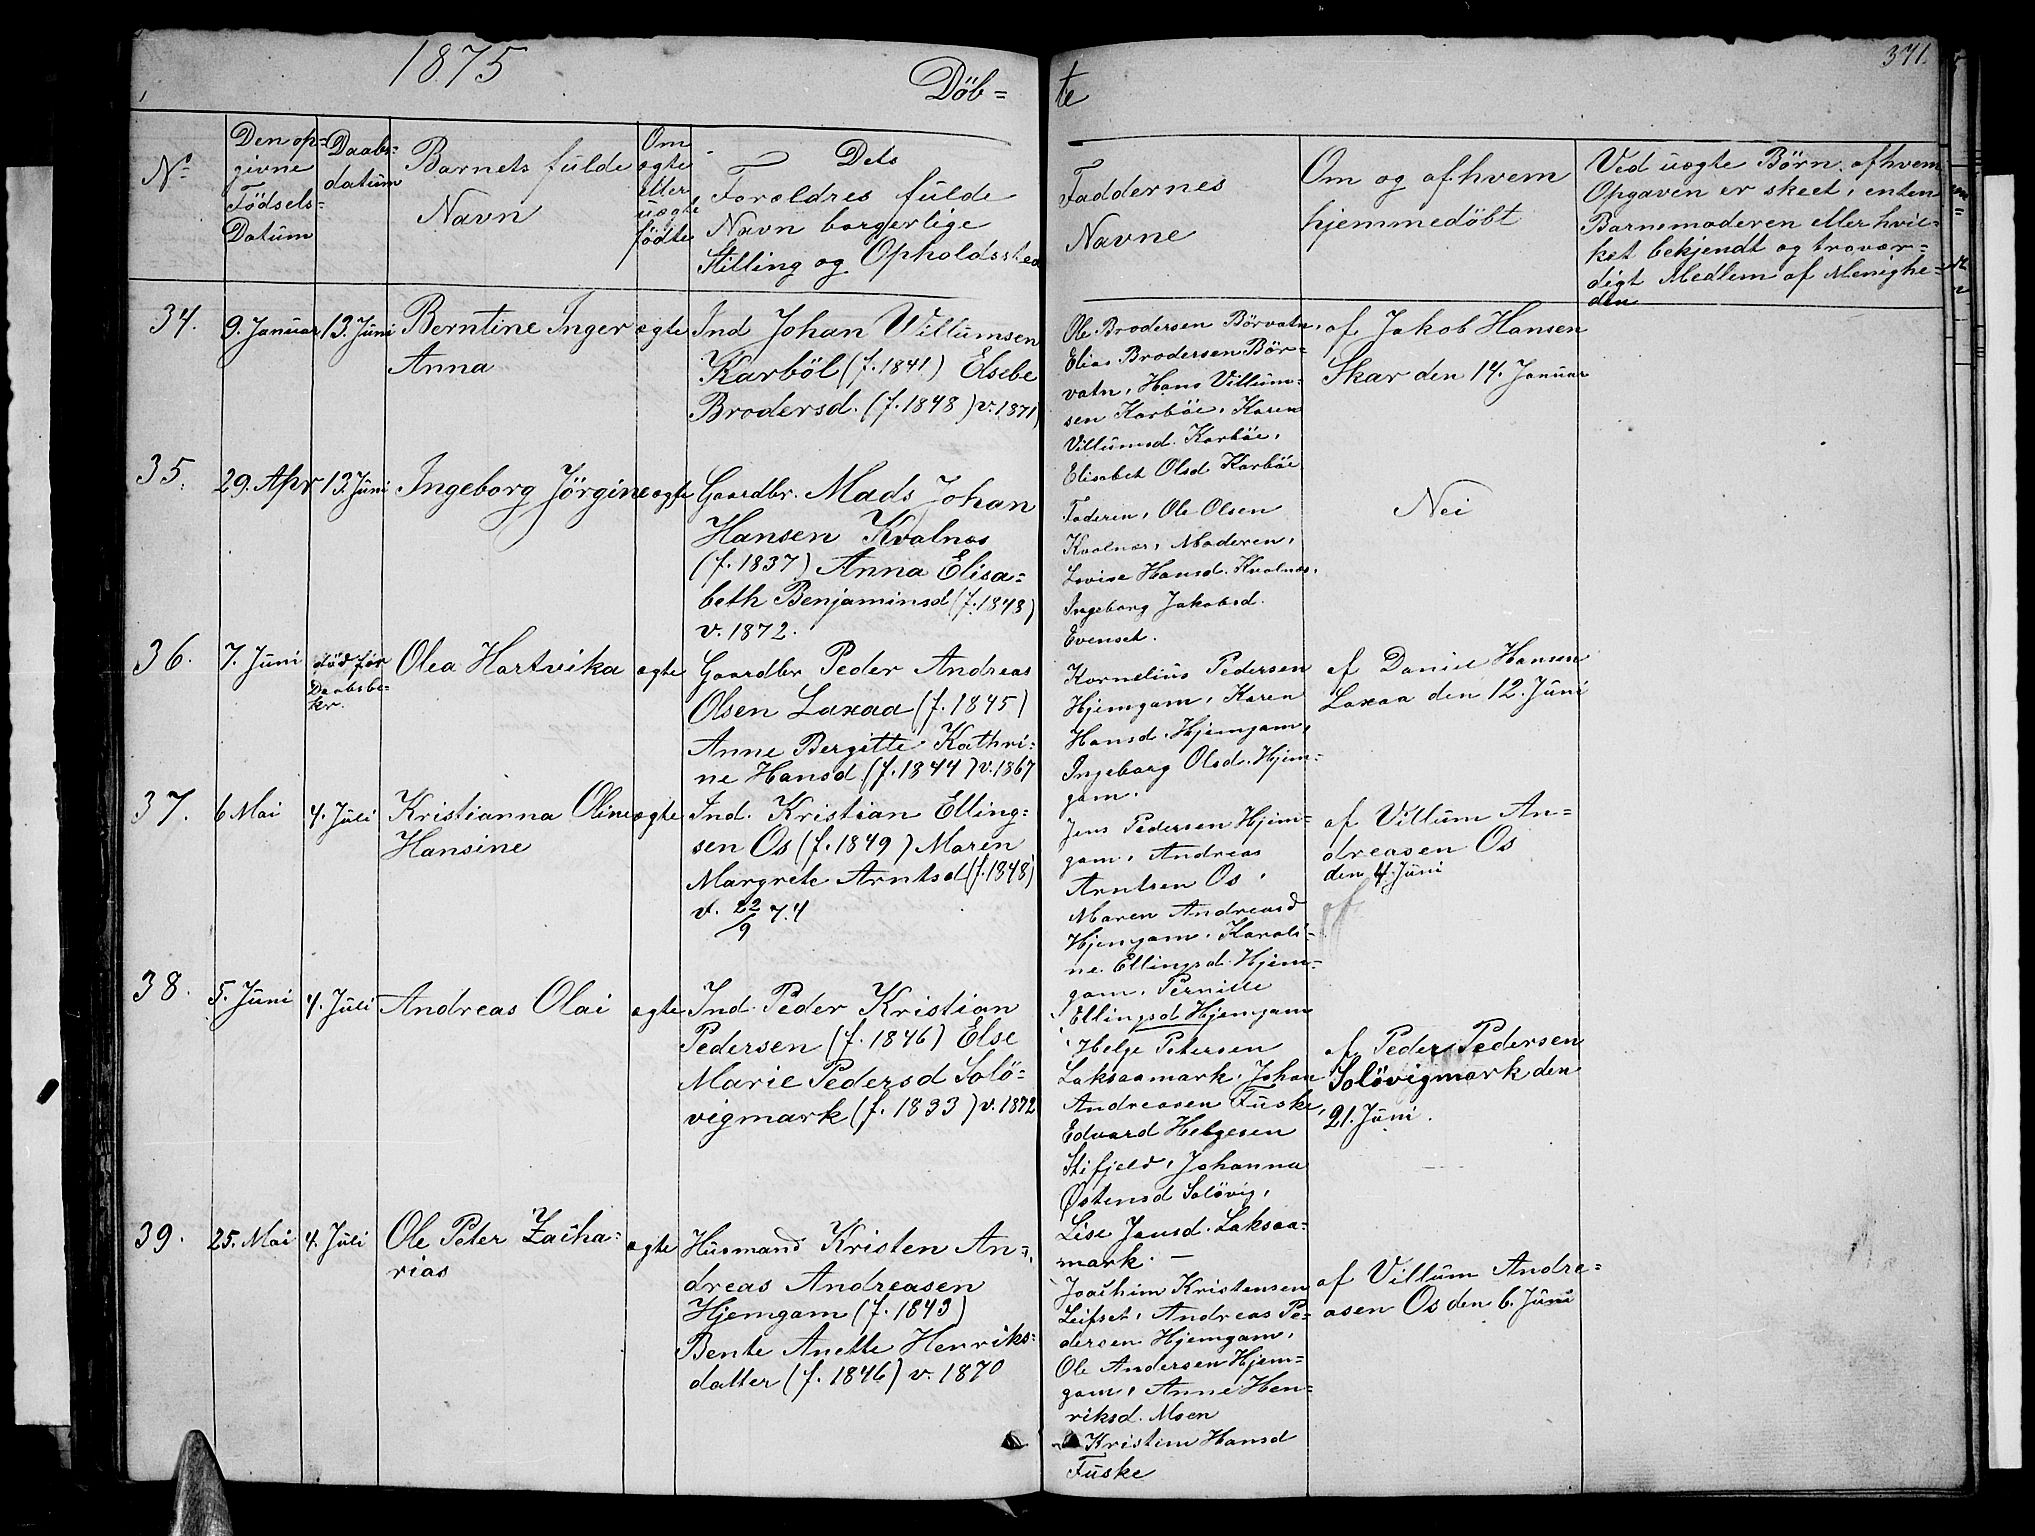 1875
Döb=
te
371.
No
Den op=
givne
Födsels=
Datum
Daabs=
datum
Barnets fulde
Navn
Om
ægte
eller
uægte
födte
Dets
Forældres fulde
Navn borgerlige
Stilling og Opholdssted
Faddernes
Navne
Om og af hvem
hjemmedöbt
Ved uægte Börn, af hvem
Opgaven er skeet, enten
Barnemoderen eller hvil=
ket bekjendt og trovær=
digt Medlem af Menighe=
den
34.
9. Januar
13. Juni
Berntine Inger
Anna
ægte
Ind Johan Willumsen
Karböl (f. 1841) Elsebe
Brodersd. (f. 1848) v. 1871)
Ole Brodersen Börvatn,
Elias Brodersen Bör=
vatn, Hans Villum=
sen Karböe, Karen
Villumsd. Karböe,
Elisabet Olsd Karböe
af Jakob Hansen
Skar den 14. Januar
35.
29. Apr
13. Juni
Ingeborg Jörgine
ægte
Gaardbr. Mads Johan
Hansen Kvalnæs
(f. 1837) Anna Elisa=
beth Benjaminsd (f. 1843)
v. 1872.
Faderen, Ole Olsen
Kvalnæs, Moderen,
Lovise Hansd. Kvalnæs,
Ingeborg Jakobsd.
Evenset.
Nei
36.
7. Juni
död för
Daabsbe=
kr.
Olea Hartvika
ægte
Gaardbr Peder Andreas
Olsen Laxaa (f. 1845)
Anne Bergitte Kathri=
ne Hansd. (f. 1844) v. 1867
Kornelius Pedersen
Hjemgam, Karen
Hansd. Hjemgam,
Ingeborg Olsd. Hjem=
gam.
af Daniel Hansen
Laxaa den 12. Juni
37.
6 Mai
4. Juli
Kristianna Oline
Hansine
ægte
Ind. Kristian Elling=
sen Os (f. 1849) Maren
Margrete Arntsd (f. 1848)
v. 22/9 74
Jens Pedersen Hjem=
gam, Andreas
Arntsen Os,
Maren Andreasd
Hjemgam, Karoli=
ne Ellingsd. Hjem=
gam, Pernille
Ellingsd Hjemgam
af Villum An=
dreasen Os
den 4. Juni
af
38.
5. Juni
4. Juli
Andreas Olai
ægte
Ind. Peder Kristian
Pedersen (f. 1846) Else
Marie Pedersd Solö=
vigmark (f. 1833) v. 1872
Helge Petersen
Laksaamark, Johan
Andreasen Fuske,
Edvard Helgesen
Stifjeld, Johanna
Østensd Solövig,
Lise Jansd. Laksaa=
mark. —
af Peder Pedersen
Solövigmark den
21. Juni.
39.
25. Mai
4. Juli
Ole Peter Zacha=
rias
ægte
Husmand Kristen An=
dreas Andreasen
Hjemgam (f. 1843)
Bente Anette Henriks=
datter (f. 1846) v. 1870
Joachim Kristensen
Leifset, Andreas Pe=
dersen Hjemgam,
Ole Andersen Hjem=
gam, Anne Hen=
riksd. Moen
Kristine Hansd
Fuske
af Villum Andre=
asen Os den 6. Juni